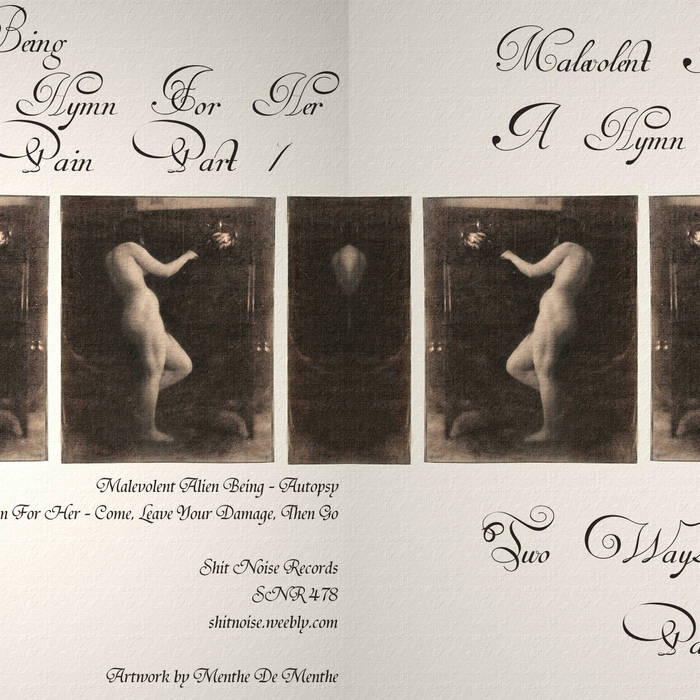 Being
Hymn For Her
Pain Part 1
Malevolent Alien Being - Autopsy
n For Her - Come, Leave Your Damage, Then Go
Shit Noise Records
SNR 478
shitnoise.weebly.com
Artwork by Menthe De Menthe
Malevolent
A Hymn
Two Ways
Pa